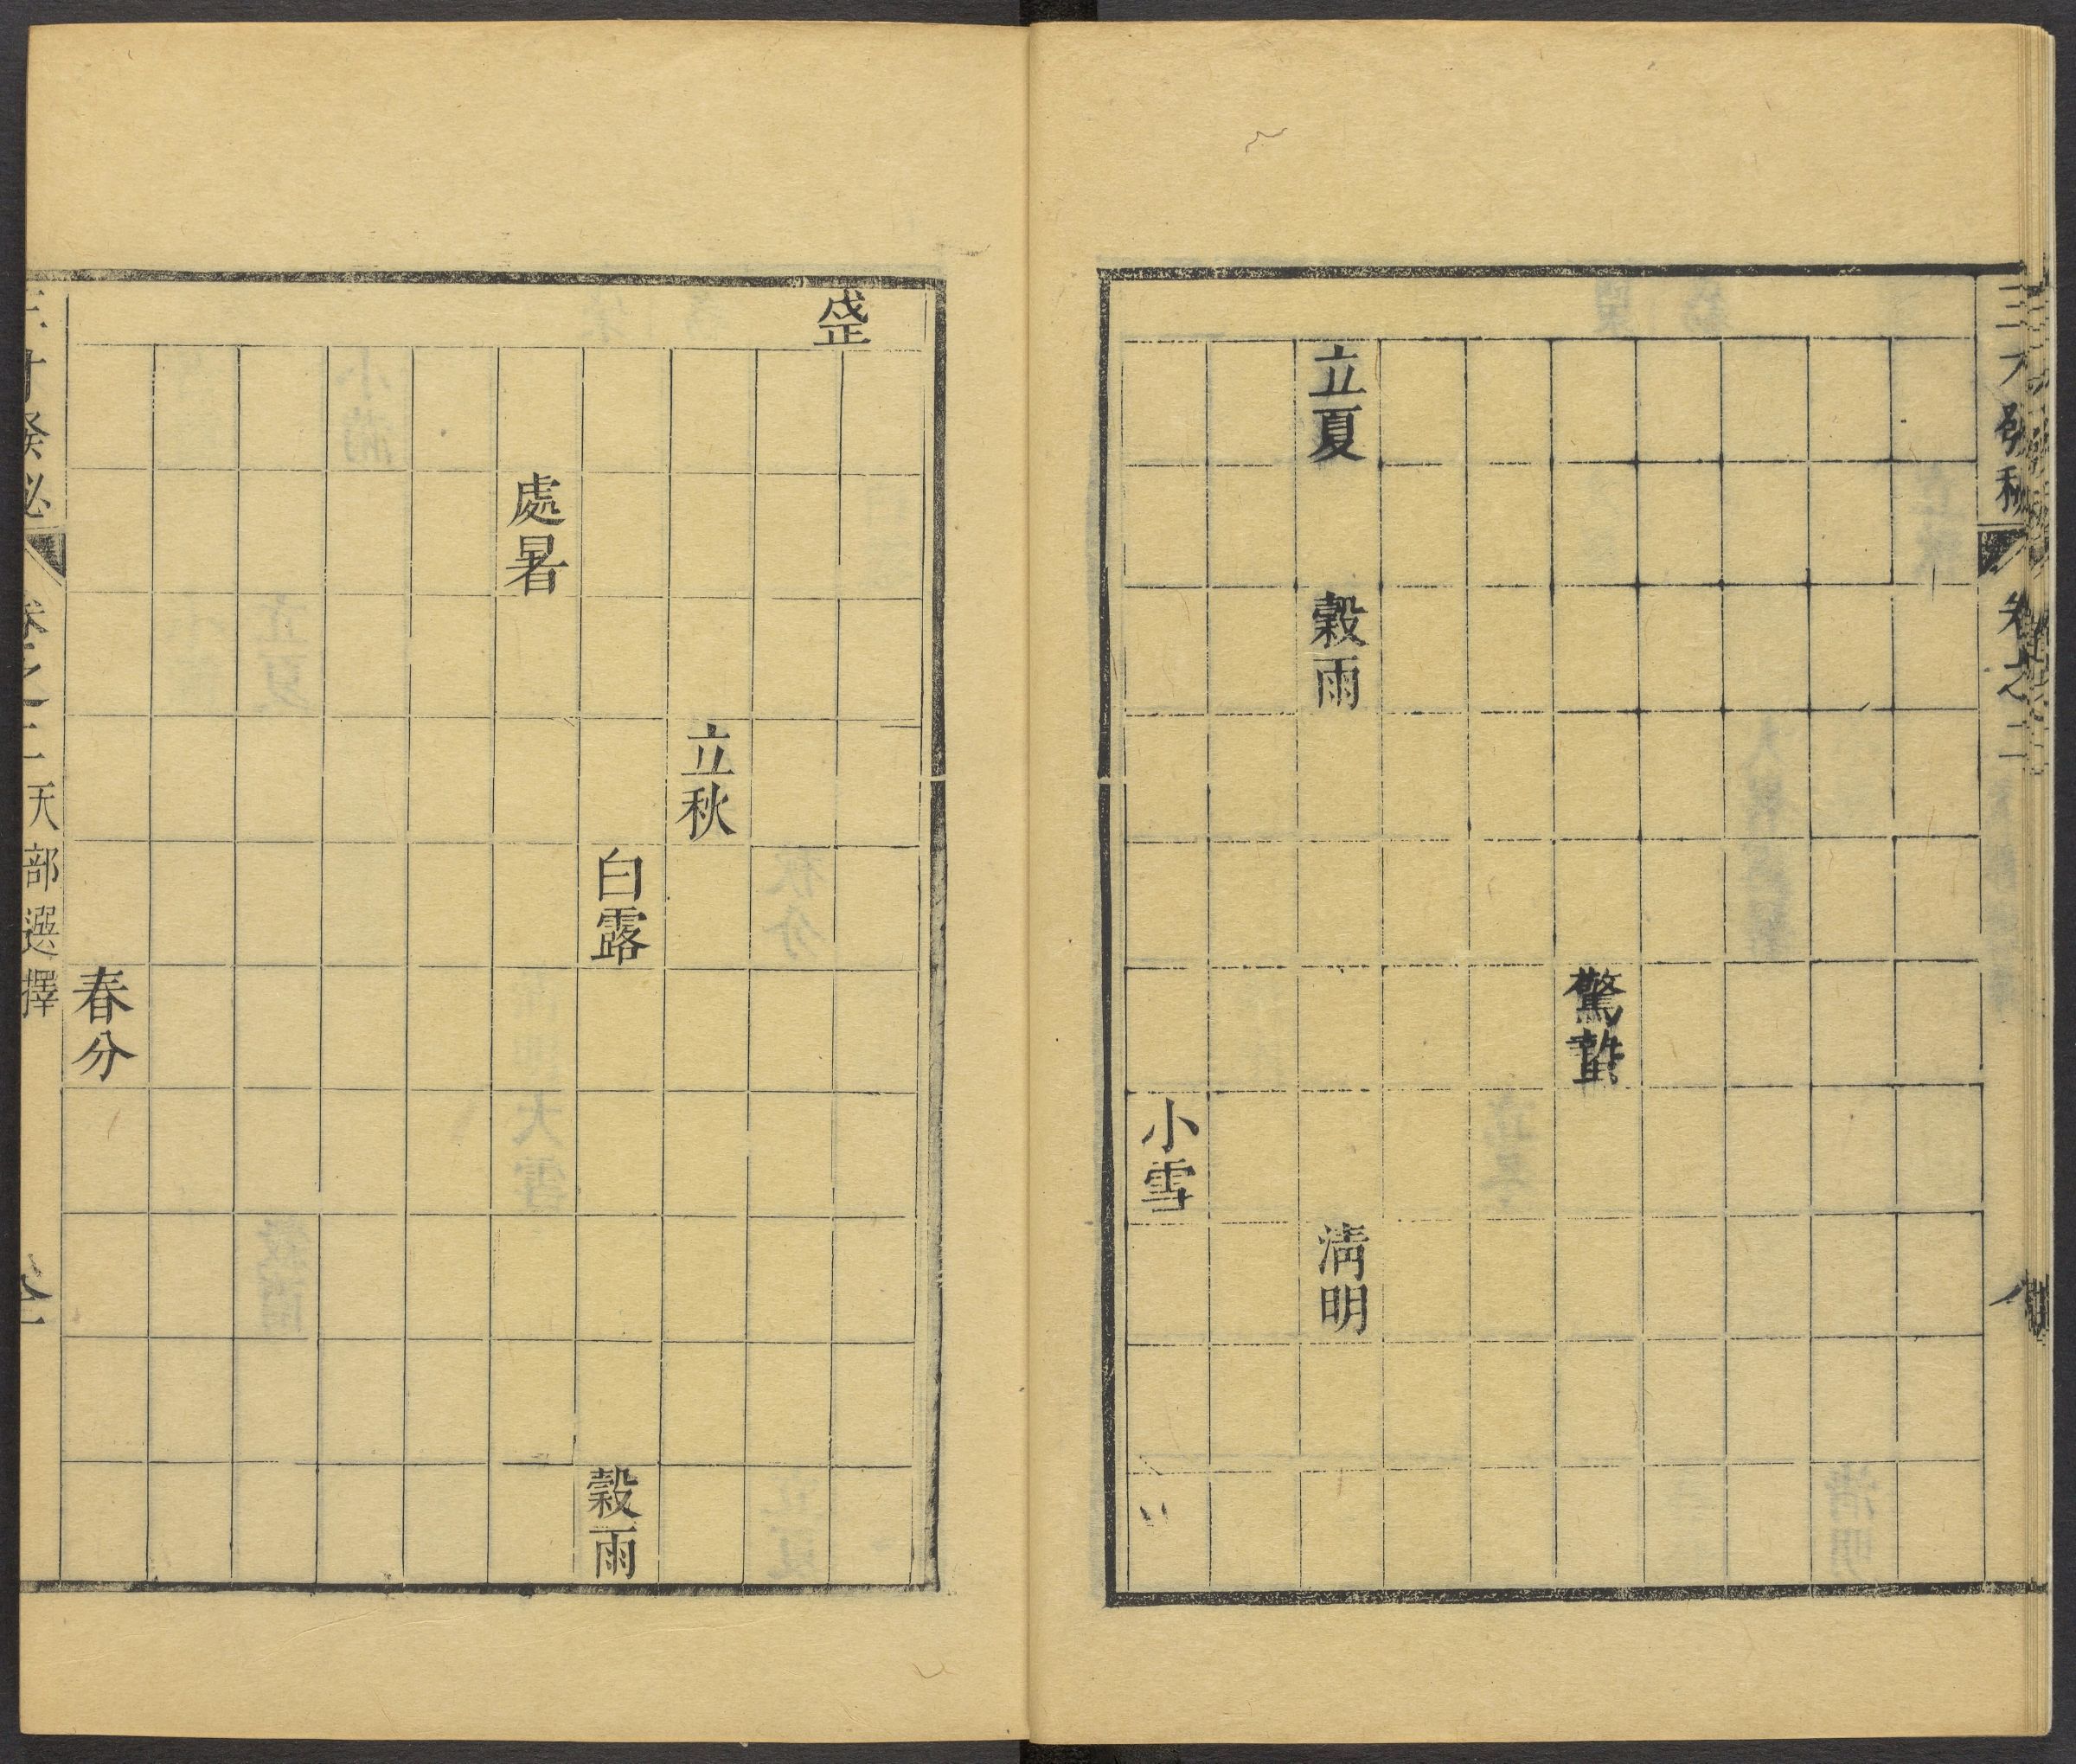 三才發秘 卷之二
驚蟄
立夏 穀雨 清明
小雪
戌正
立秋
白露 穀雨
處暑
春分
三才發秘 卷之二 天部選擇